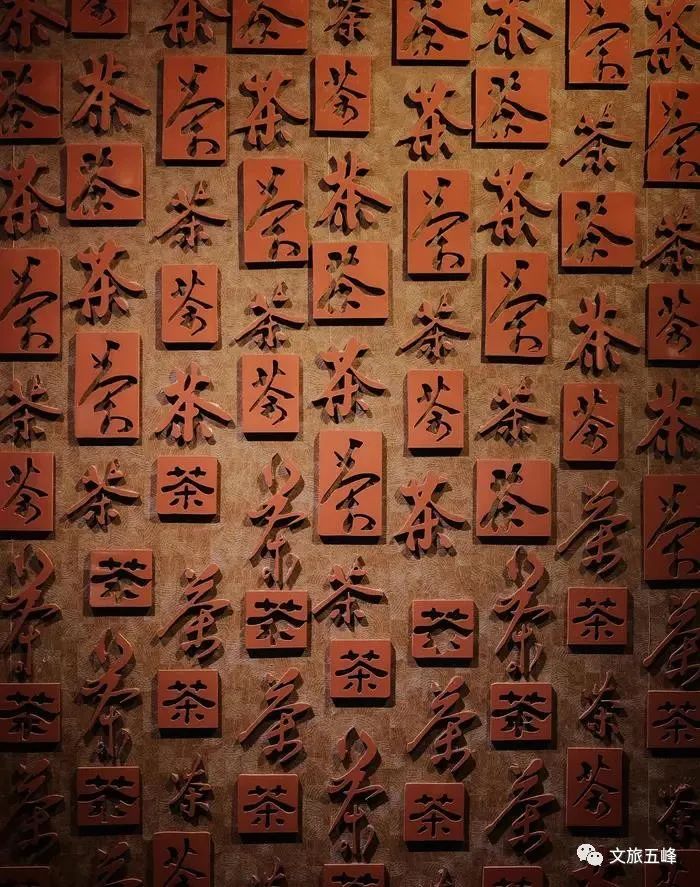 茶茶茶茶茶茶茶茶茶
茶茶茶茶茶茶茶茶茶
茶茶茶茶茶茶茶茶茶
茶茶茶茶茶茶茶茶茶
茶茶茶茶茶茶茶茶茶
茶茶茶茶茶茶茶茶茶
茶茶茶茶茶茶茶茶茶
茶茶茶茶茶茶茶茶茶
茶茶茶茶茶茶茶茶茶
茶茶
文旅五峰